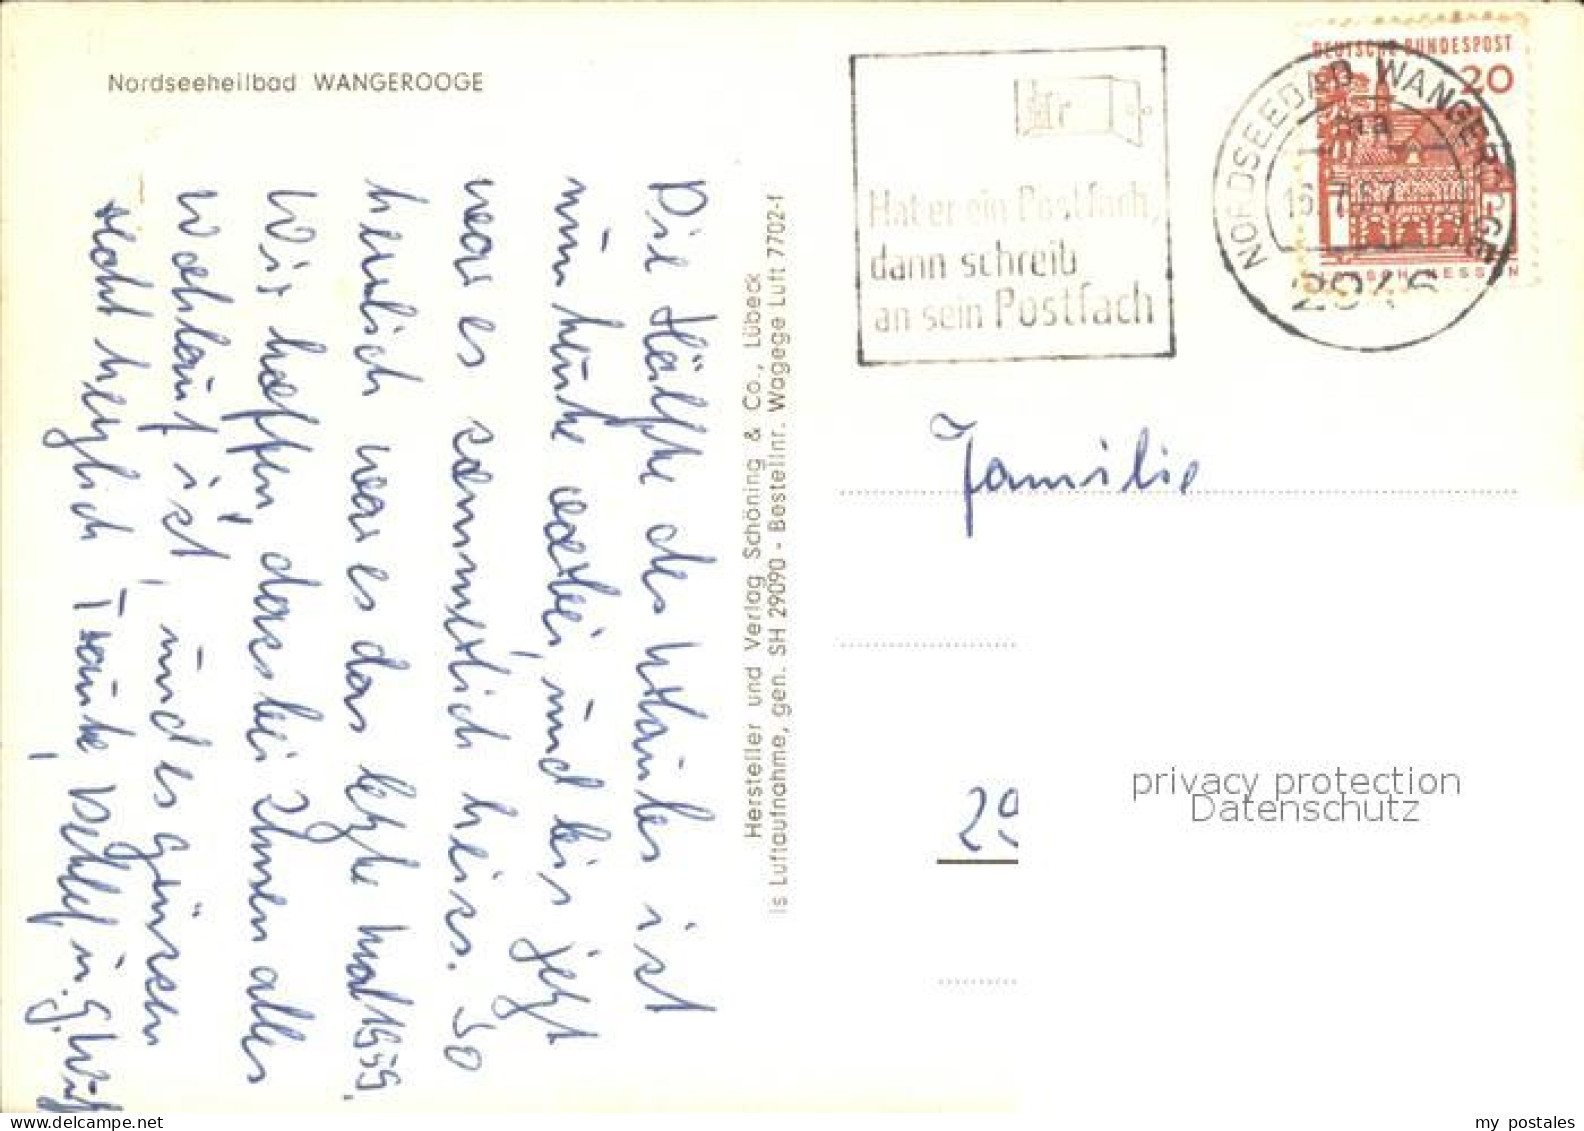 Nordseeheilbad WANGEROOGE
Die Hälfte des Urlaubes ist
nun heute vorbei, und bis jetzt
war es sommerlich heiss. So
herrlich war es das letzte mal 1959.
Wir hoffen, dass bei Ihnen alles
wohlauf ist, und es grüssen
recht herzlich Traute, Detlef, u. G.
Hersteller und Verlag Schöning & Co., Lübeck
is Luftaufnahme, gen. SH 29090 - Bestellnr. Wagege Luft 7702-f
Hat er ein Postfach,
dann schreib
an sein Postfach
DEUTSCHE BUNDESPOST
20
LORSCH HESSEN
NORDSEEBAD WANGEROOGE
16.7.67
2946
Familie
29
privacy protection
Datenschutz
my postales